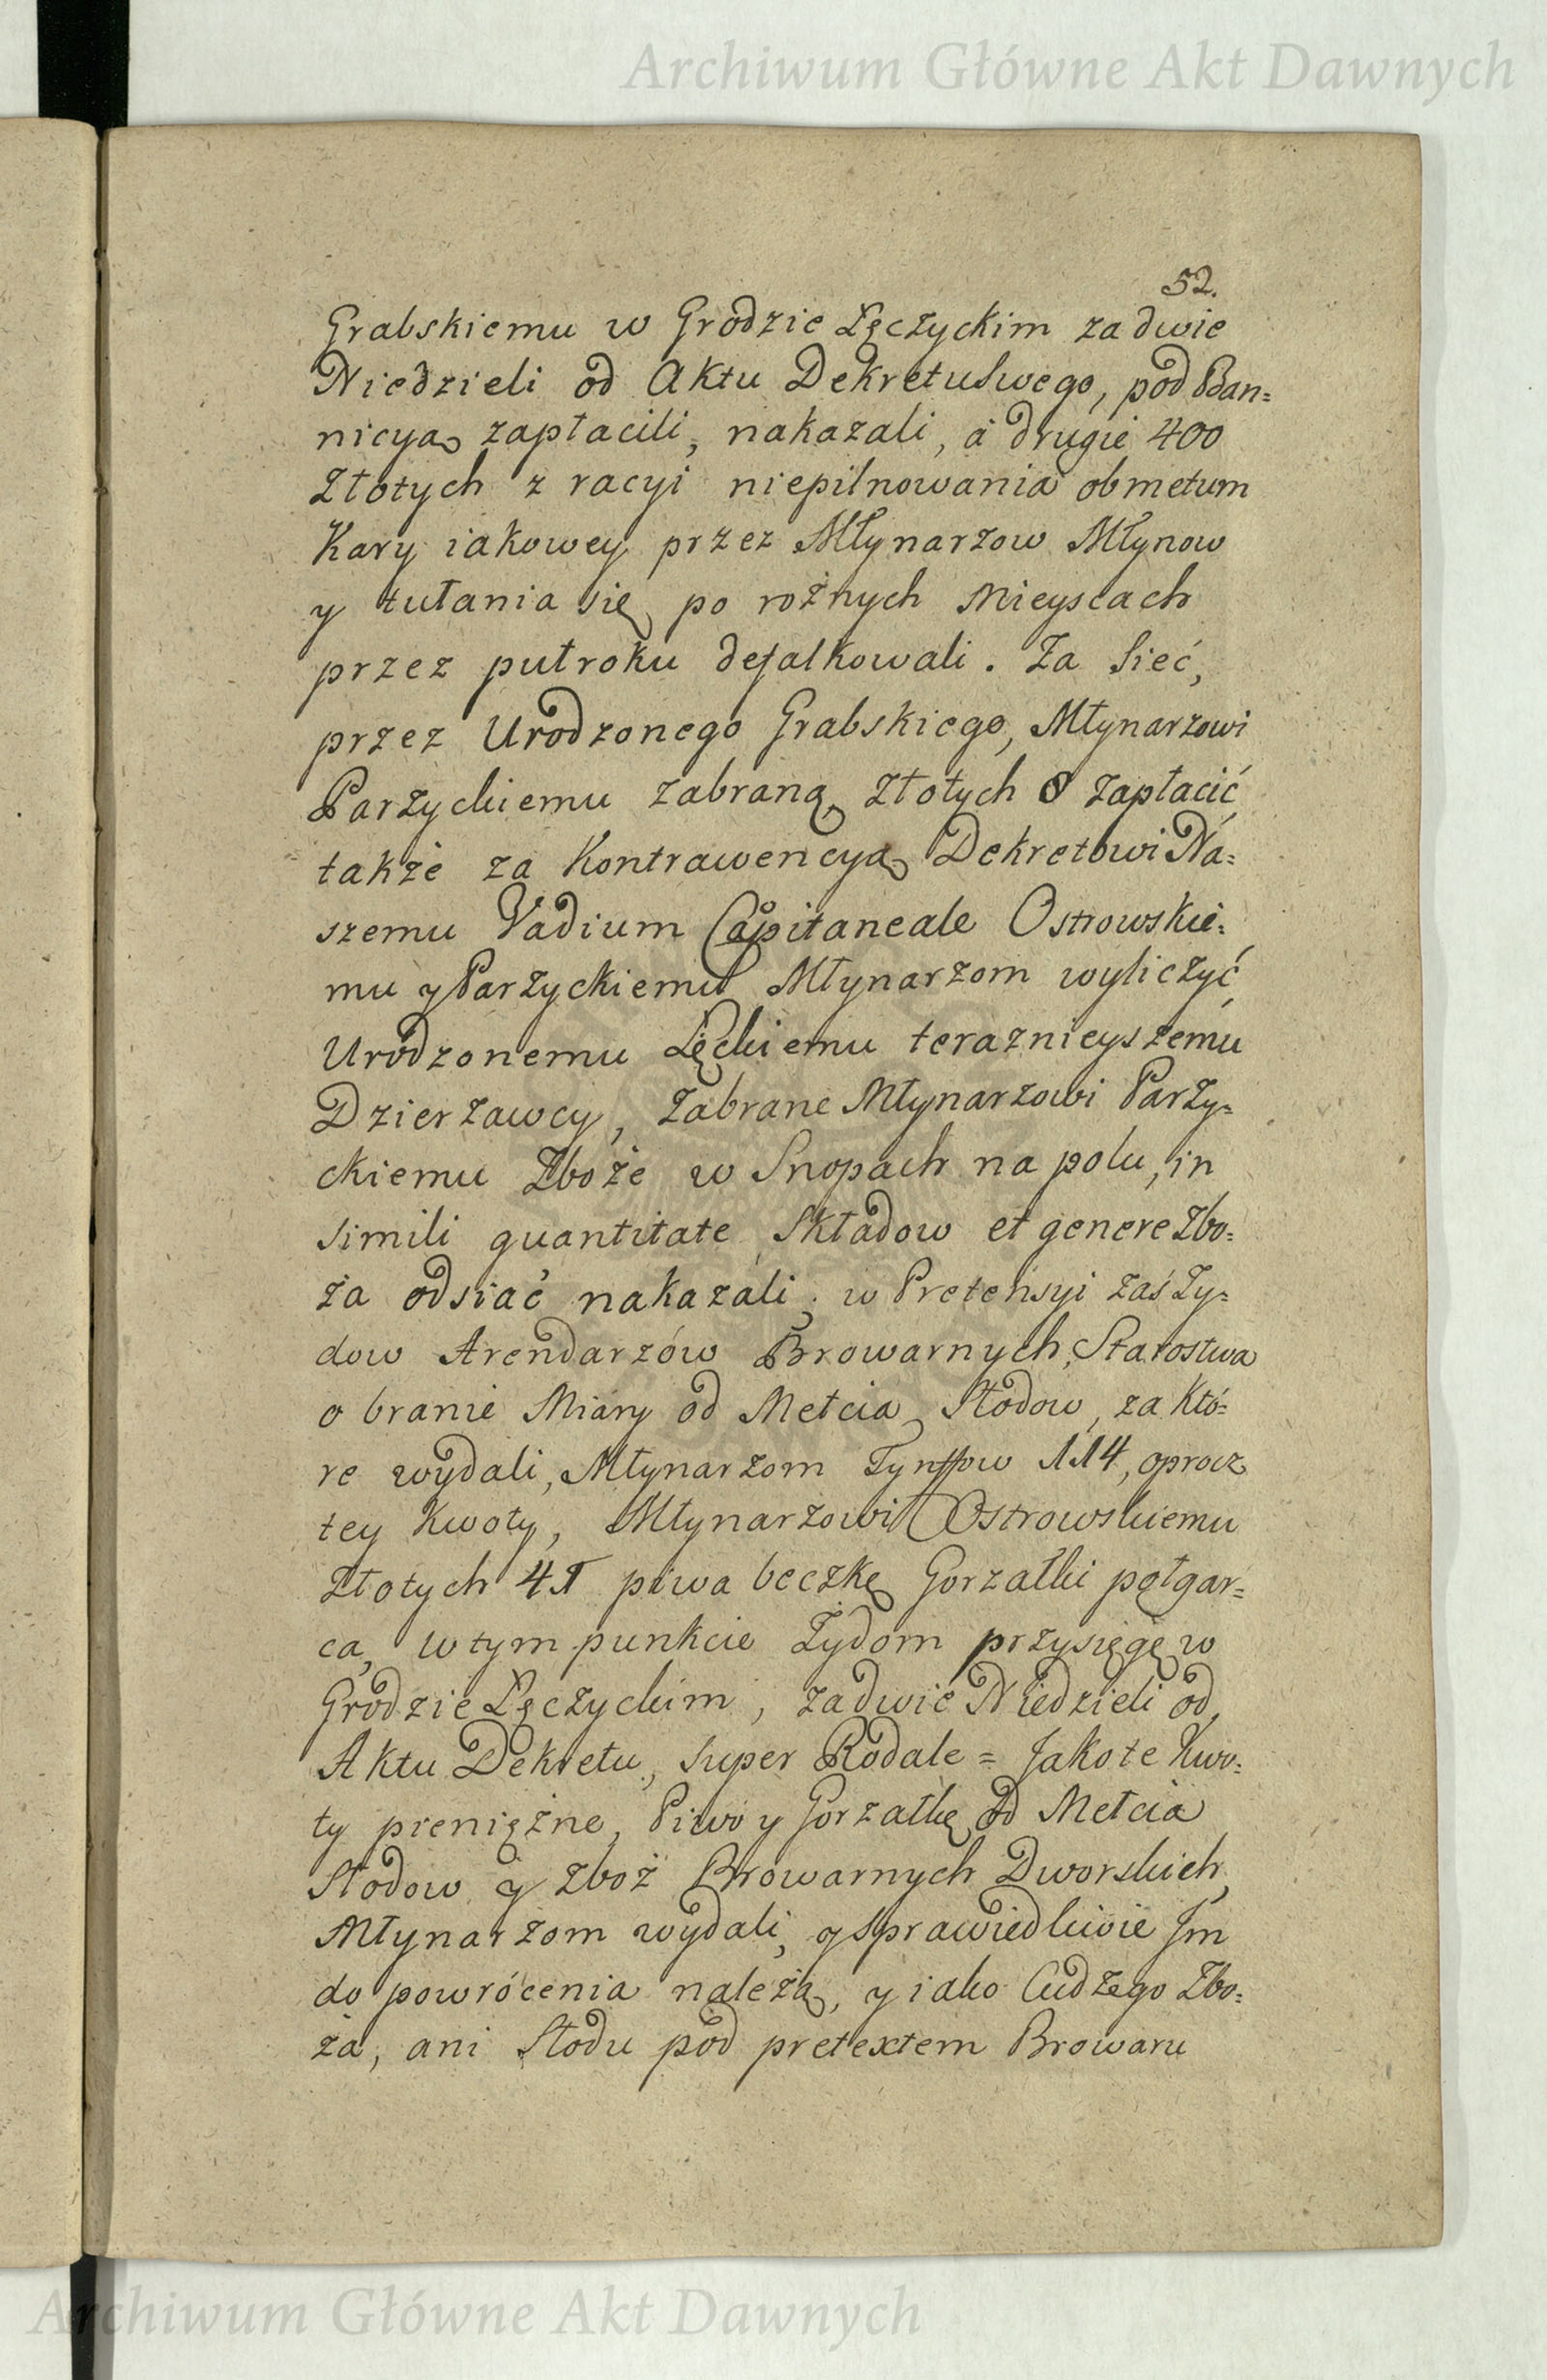 Archiwum Główne Akt Dawnych
52.
Grabskiemu w Grodzie Łęczyckim za dwie
Niedzieli od Aktu Dekretu swego, pod Ban=
nicyą zapłacili, nakazali, á drugie 400
Złotych z racyi niepilnowania ob metum
Kary iakowey przez Młynarzow Młynow
y tułania się po rożnych Mieyscach
przez puł roku defalkowali. Za Sieć,
przez Urodzonego Grabskiego, Młynarzowi
Parzyckiemu zabraną Złotych 8 zapłacić
także za Kontrawencyą Dekretowi Na=
szemu Vadium Capitaneale Ostrowskie=
mu y Parzyckiemu Młynarzom wyliczyć
Urodzonemu Łęckiemu teraznieyszemu
Dzierzawcy, zabrane Młynarzowi Parzy=
ckiemu Zboże w Snopach na polu, in
simili quantitate Składow et genere Zbo=
ża odsiać nakazali; w Pretensyi zaś Ży=
dow Arendarzów Browarnych, Starostwa
o branie Miary od Mełcia Słodow, za Któ=
re wydali, Młynarzom Tynffow 114, oprocz
tey Kwoty, Młynarzowi Ostrowskiemu
Złotych 41 piwa beczkę Gorzałki połgar=
ca, w tym punkcie Żydom przysięgę w
Grodzie Łęczyckim, za dwie Niedzieli od
Aktu Dekretu, super Rodale = Jako te Kwo=
ty pieniężne, Piwo y Gorzałkę od Mełcia
Słodow y Zboż Browarnych Dworskich
Młynarzom wydali, y sprawiedliwie Jm
do powrócenia należą, y iako Cudzego Zbo=
ża, ani Słodu pod pretextem Browaru
Archiwum Główne Akt Dawnych